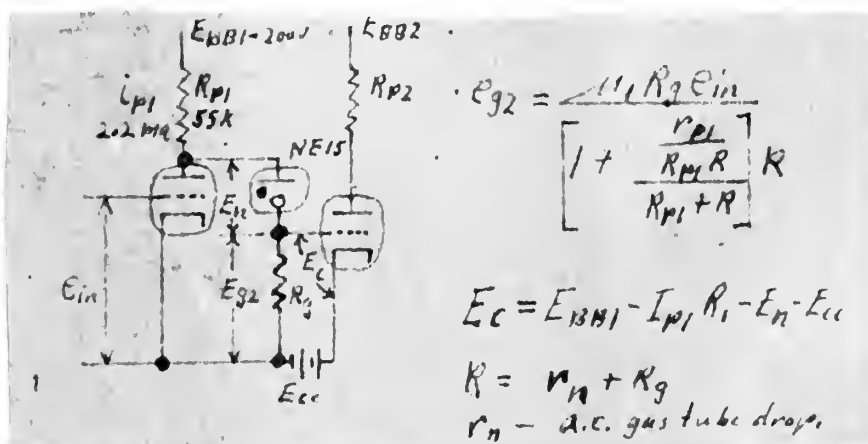 EBB1-200v EBB2
ip1 Rp1 Rp2
2.2 ma 55K
NE15
En
Ein Eg2 Rg Ec
Ecc
1
eg2 = -μ1 Rg ein
[1 + rp1 / (Rp1 R / (Rp1 + R))] R
Ec = EBB1 - Ip1 R1 - En - Ecc
R = rn + Rg
rn - a.c. gas tube drop.